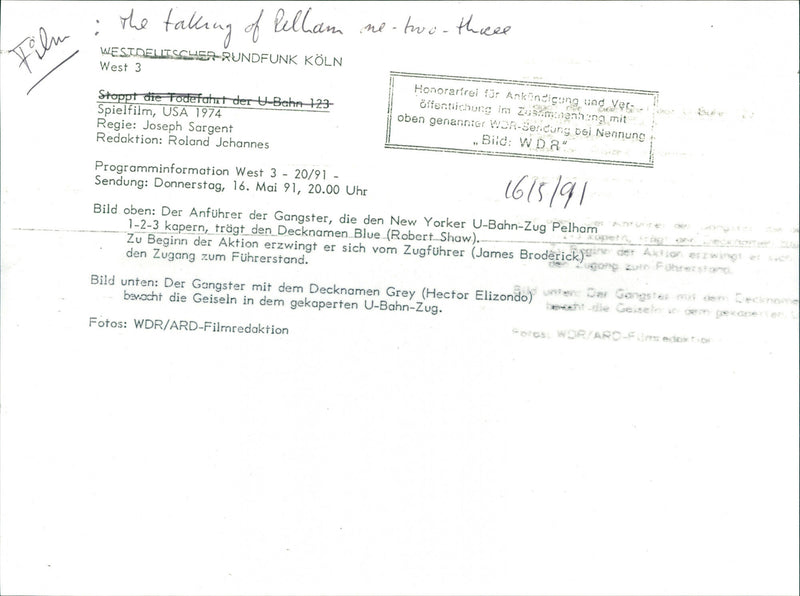 Film : The talking of Pelham ne-two-three
WESTDEUTSCHER RUNDFUNK KÖLN
West 3
Stoppt die Todefahrt der U-Bahn 123
Spielfilm, USA 1974
Regie: Joseph Sargent
Redaktion: Roland Johannes
Honorarfrei für Ankündigung und Ver-
öffentlichung im Zusammenhang mit
oben genannter WDR-Sendung bei Nennung
"Bild: WDR"
Programminformation West 3 - 20/91 -
Sendung: Donnerstag, 16. Mai 91, 20.00 Uhr
16/5/91
Bild oben: Der Anführer der Gangster, die den New Yorker U-Bahn-Zug Pelham
1-2-3 kapern, trägt den Decknamen Blue (Robert Shaw).
Zu Beginn der Aktion erzwingt er sich vom Zugführer (James Broderick)
den Zugang zum Führerstand.
Bild unten: Der Gangster mit dem Decknamen Grey (Hector Elizondo)
bewacht die Geiseln in dem gekaperten U-Bahn-Zug.
Fotos: WDR/ARD-Filmredaktion